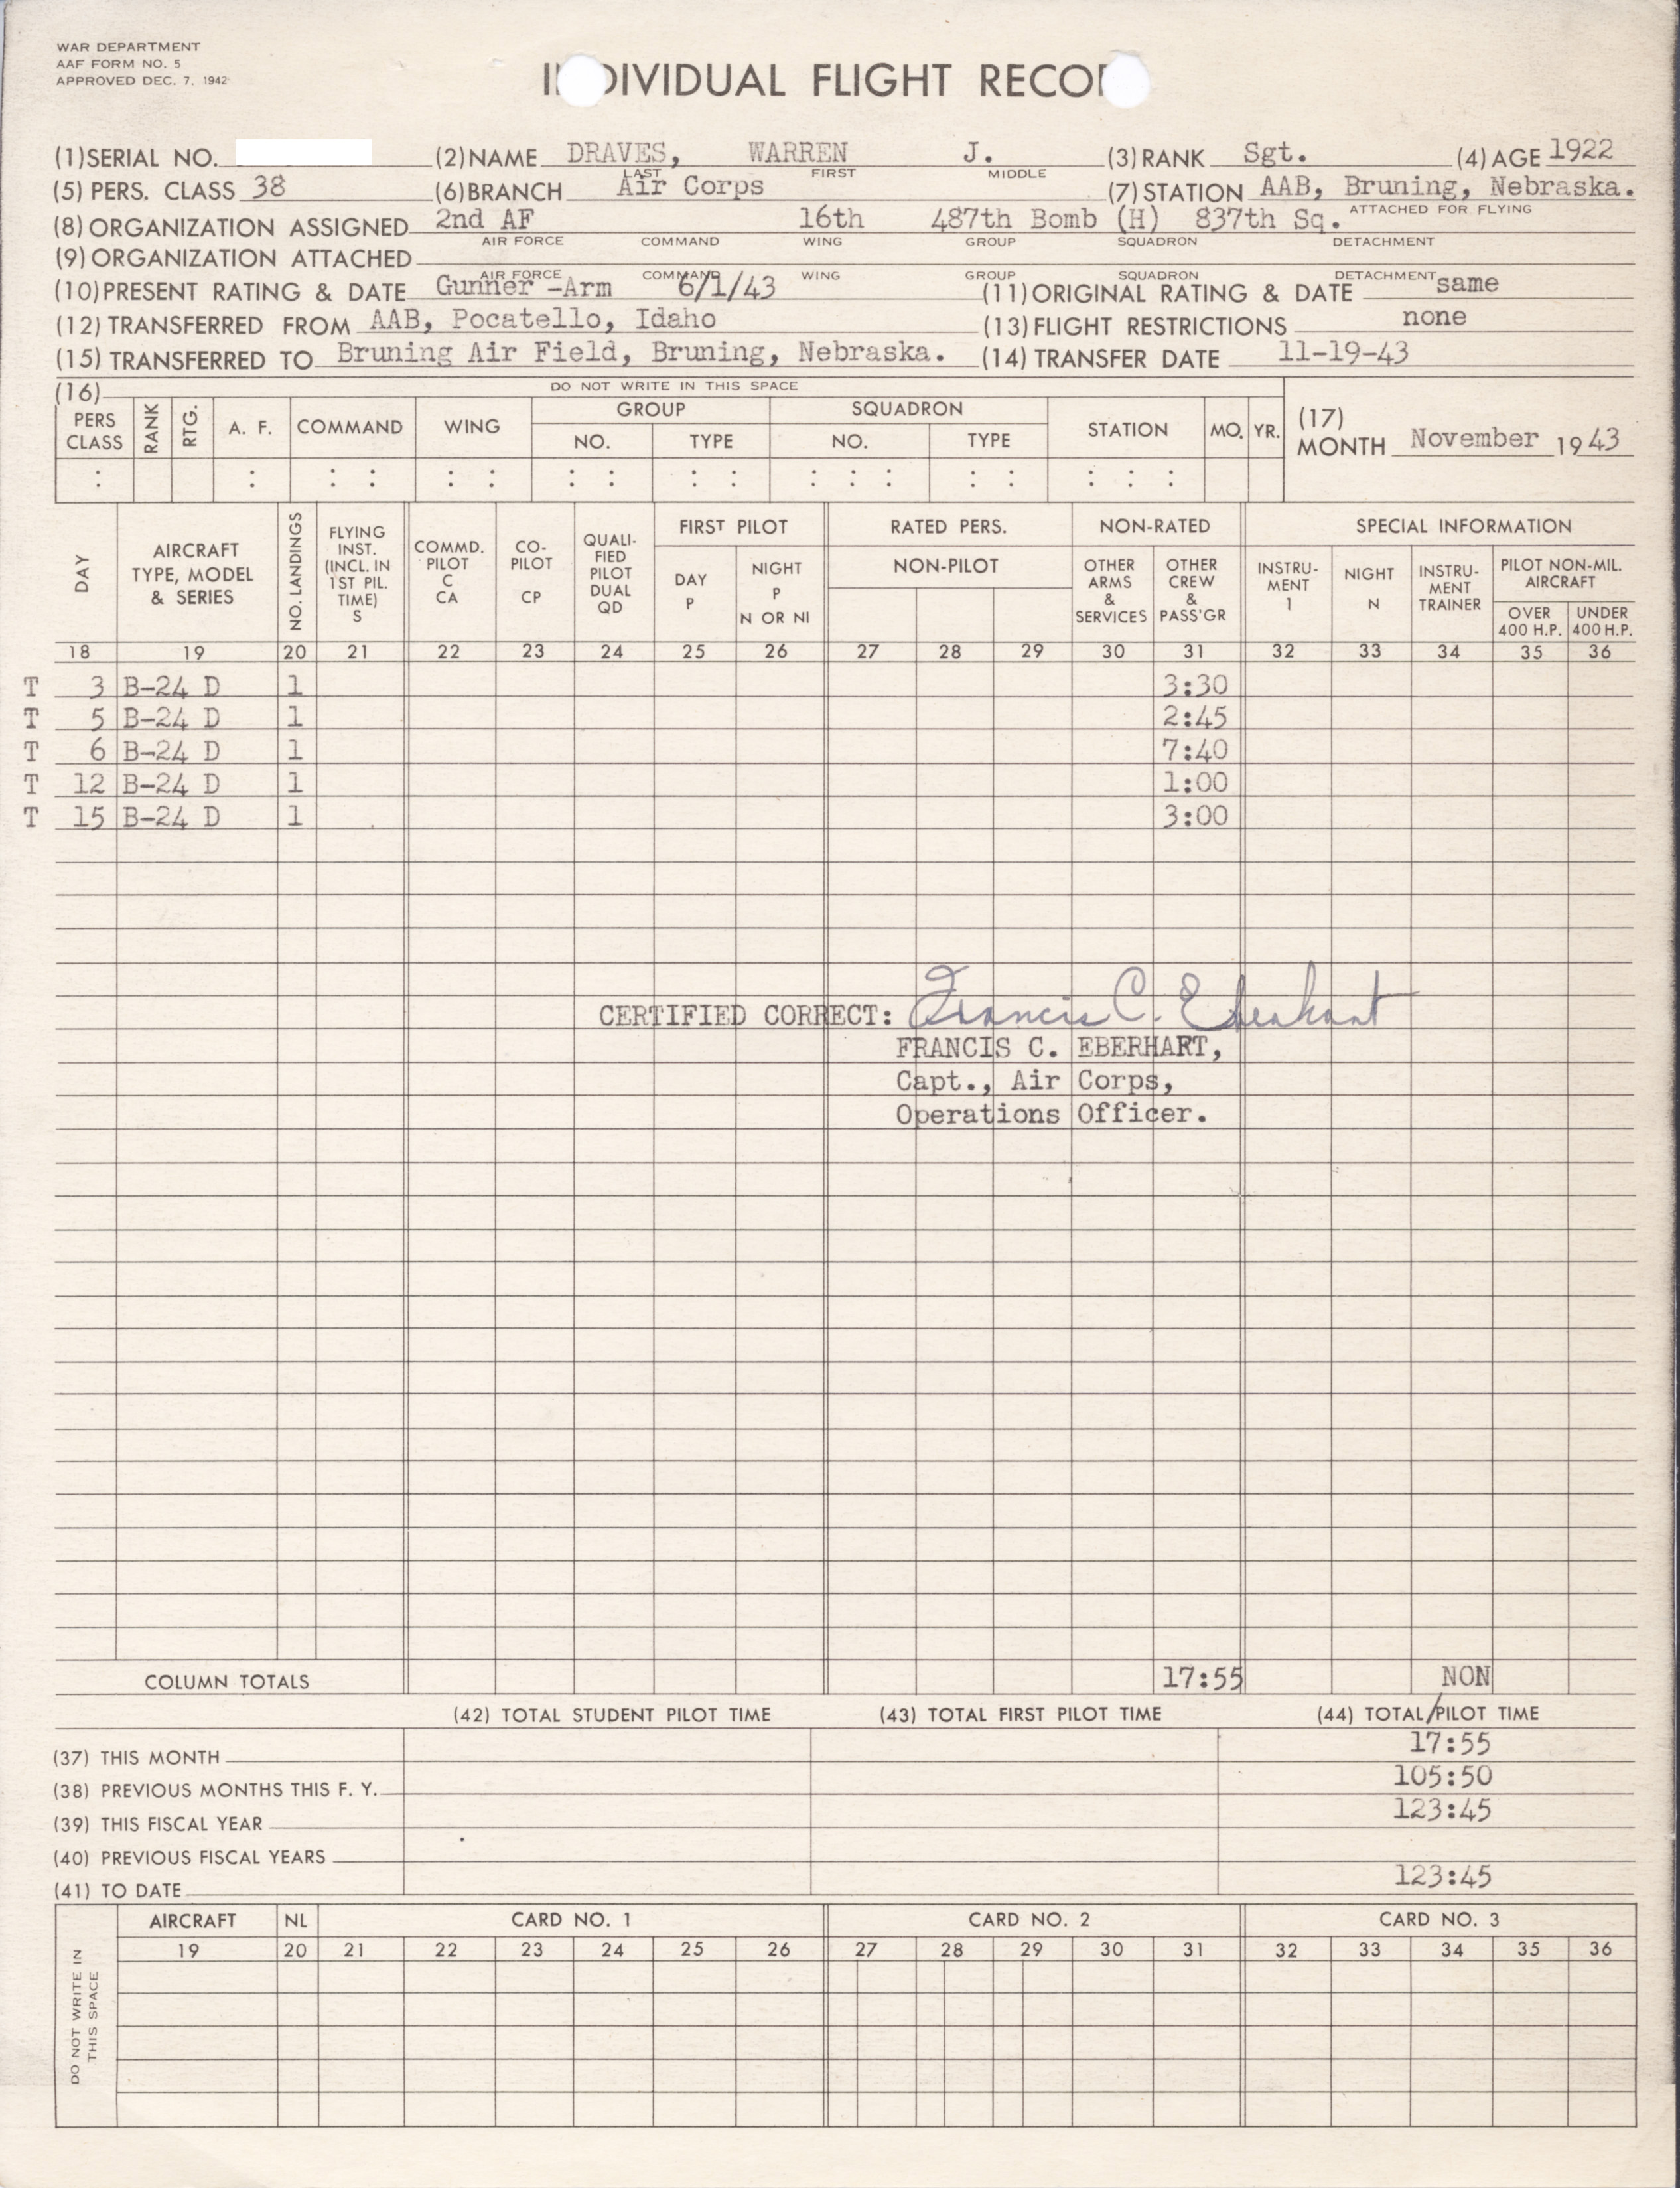 WAR DEPARTMENT
AAF FORM NO. 5
APPROVED DEC. 7, 1942
INDIVIDUAL FLIGHT RECOR
(1) SERIAL NO. (2) NAME DRAVES, WARREN J. (3) RANK Sgt. (4) AGE 1922
LAST FIRST MIDDLE
(5) PERS. CLASS 38 (6) BRANCH Air Corps (7) STATION AAB, Bruning, Nebraska.
ATTACHED FOR FLYING
(8) ORGANIZATION ASSIGNED 2nd AF 16th 487th Bomb (H) 837th Sq.
AIR FORCE COMMAND WING GROUP SQUADRON DETACHMENT
(9) ORGANIZATION ATTACHED
AIR FORCE COMMAND WING GROUP SQUADRON DETACHMENT
(10) PRESENT RATING & DATE Gunner-Arm 6/1/43 (11) ORIGINAL RATING & DATE same
(12) TRANSFERRED FROM AAB, Pocatello, Idaho (13) FLIGHT RESTRICTIONS none
(15) TRANSFERRED TO Bruning Air Field, Bruning, Nebraska. (14) TRANSFER DATE 11-19-43
(16) DO NOT WRITE IN THIS SPACE
PERS CLASS RANK RTG. A. F. COMMAND WING GROUP NO. TYPE SQUADRON NO. TYPE STATION MO. YR. (17) MONTH November 1943
DAY AIRCRAFT TYPE, MODEL & SERIES NO. LANDINGS FLYING INST. (INCL. IN 1ST PIL. TIME) S COMMD. PILOT C CA CO-PILOT CP QUALI-FIED PILOT DUAL QD FIRST PILOT DAY P NIGHT P N OR NI RATED PERS. NON-PILOT NON-RATED OTHER ARMS & SERVICES OTHER CREW & PASS'GR SPECIAL INFORMATION INSTRU-MENT 1 NIGHT N INSTRU-MENT TRAINER PILOT NON-MIL. AIRCRAFT OVER 400 H.P. UNDER 400 H.P.
18 19 20 21 22 23 24 25 26 27 28 29 30 31 32 33 34 35 36
T 3 B-24 D 1 3:30
T 5 B-24 D 1 2:45
T 6 B-24 D 1 7:40
T 12 B-24 D 1 1:00
T 15 B-24 D 1 3:00
CERTIFIED CORRECT: Francis C. Eberhart
FRANCIS C. EBERHART,
Capt., Air Corps,
Operations Officer.
COLUMN TOTALS 17:55 NON
(42) TOTAL STUDENT PILOT TIME (43) TOTAL FIRST PILOT TIME (44) TOTAL/PILOT TIME
(37) THIS MONTH 17:55
(38) PREVIOUS MONTHS THIS F. Y. 105:50
(39) THIS FISCAL YEAR 123:45
(40) PREVIOUS FISCAL YEARS
(41) TO DATE 123:45
AIRCRAFT NL CARD NO. 1 CARD NO. 2 CARD NO. 3
19 20 21 22 23 24 25 26 27 28 29 30 31 32 33 34 35 36
DO NOT WRITE IN THIS SPACE